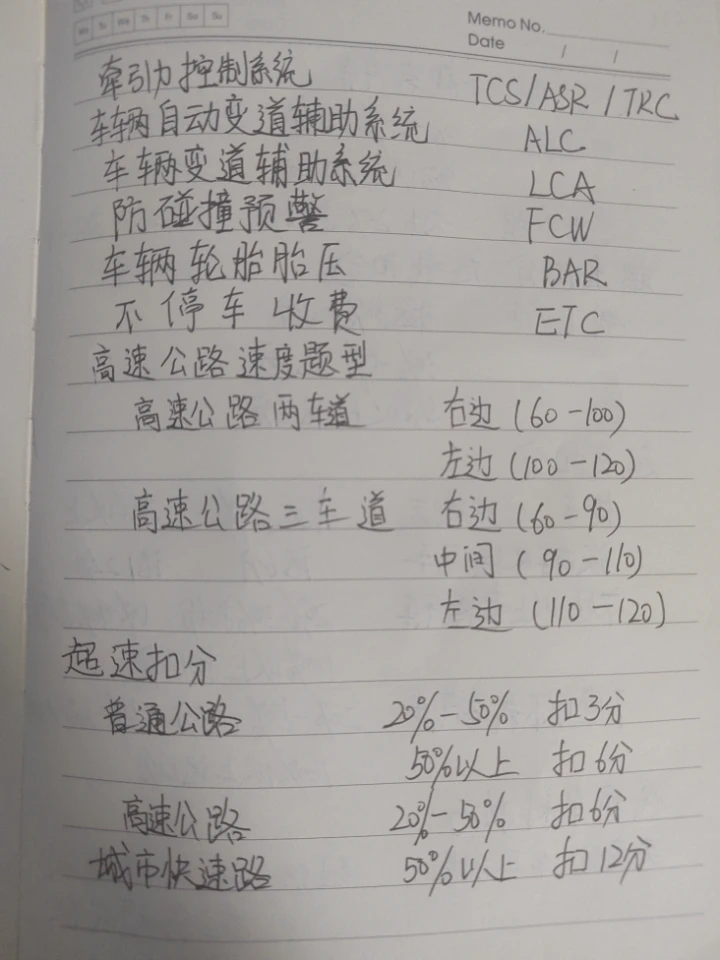 Mo Tu We Th Fr Sa Su
Memo No.
Date / /
牵引力控制系统 TCS/ASR/TRC
车辆自动变道辅助系统 ALC
车辆变道辅助系统 LCA
防碰撞预警 FCW
车辆轮胎胎压 BAR
不停车收费 ETC
高速公路速度题型
高速公路两车道 右边(60-100)
左边(100-120)
高速公路三车道 右边(60-90)
中间(90-110)
左边(110-120)
超速扣分
普通公路 20%-50% 扣3分
50%以上 扣6分
高速公路 20%-50% 扣6分
城市快速路 50%以上 扣12分